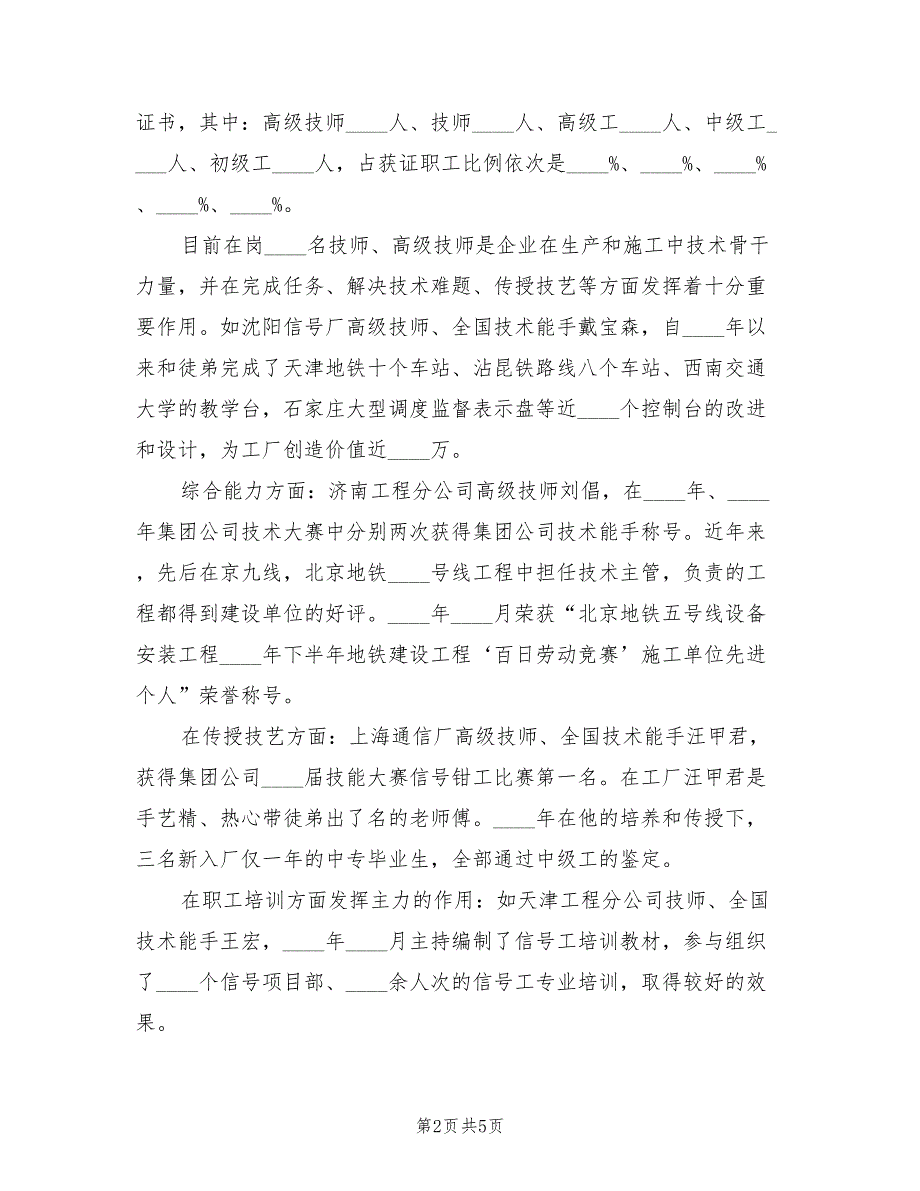 证书，其中：高级技师____人、技师____人、高级工____人、中级工_
___人、初级工____人，占获证职工比例依次是____%、____%、____%
、____%、____%。
目前在岗____名技师、高级技师是企业在生产和施工中技术骨干
力量，并在完成任务、解决技术难题、传授技艺等方面发挥着十分重
要作用。如沈阳信号厂高级技师、全国技术能手戴宝森，自____年以
来和徒弟完成了天津地铁十个车站、沾昆铁路线八个车站、西南交通
大学的教学台，石家庄大型调度监督表示盘等近____个控制台的改进
和设计，为工厂创造价值近____万。
综合能力方面：济南工程分公司高级技师刘倡，在____年、____
年集团公司技术大赛中分别两次获得集团公司技术能手称号。近年来
，先后在京九线，北京地铁____号线工程中担任技术主管，负责的工
程都得到建设单位的好评。____年____月荣获“北京地铁五号线设备
安装工程____年下半年地铁建设工程‘百日劳动竞赛’施工单位先进
个人”荣誉称号。
在传授技艺方面：上海通信厂高级技师、全国技术能手汪甲君，
获得集团公司____届技能大赛信号钳工比赛第一名。在工厂汪甲君是
手艺精、热心带徒弟出了名的老师傅。____年在他的培养和传授下，
三名新入厂仅一年的中专毕业生，全部通过中级工的鉴定。
在职工培训方面发挥主力的作用：如天津工程分公司技师、全国
技术能手王宏，____年____月主持编制了信号工培训教材，参与组织
了____个信号项目部、____余人次的信号工专业培训，取得较好的效
果。
第2页 共5页